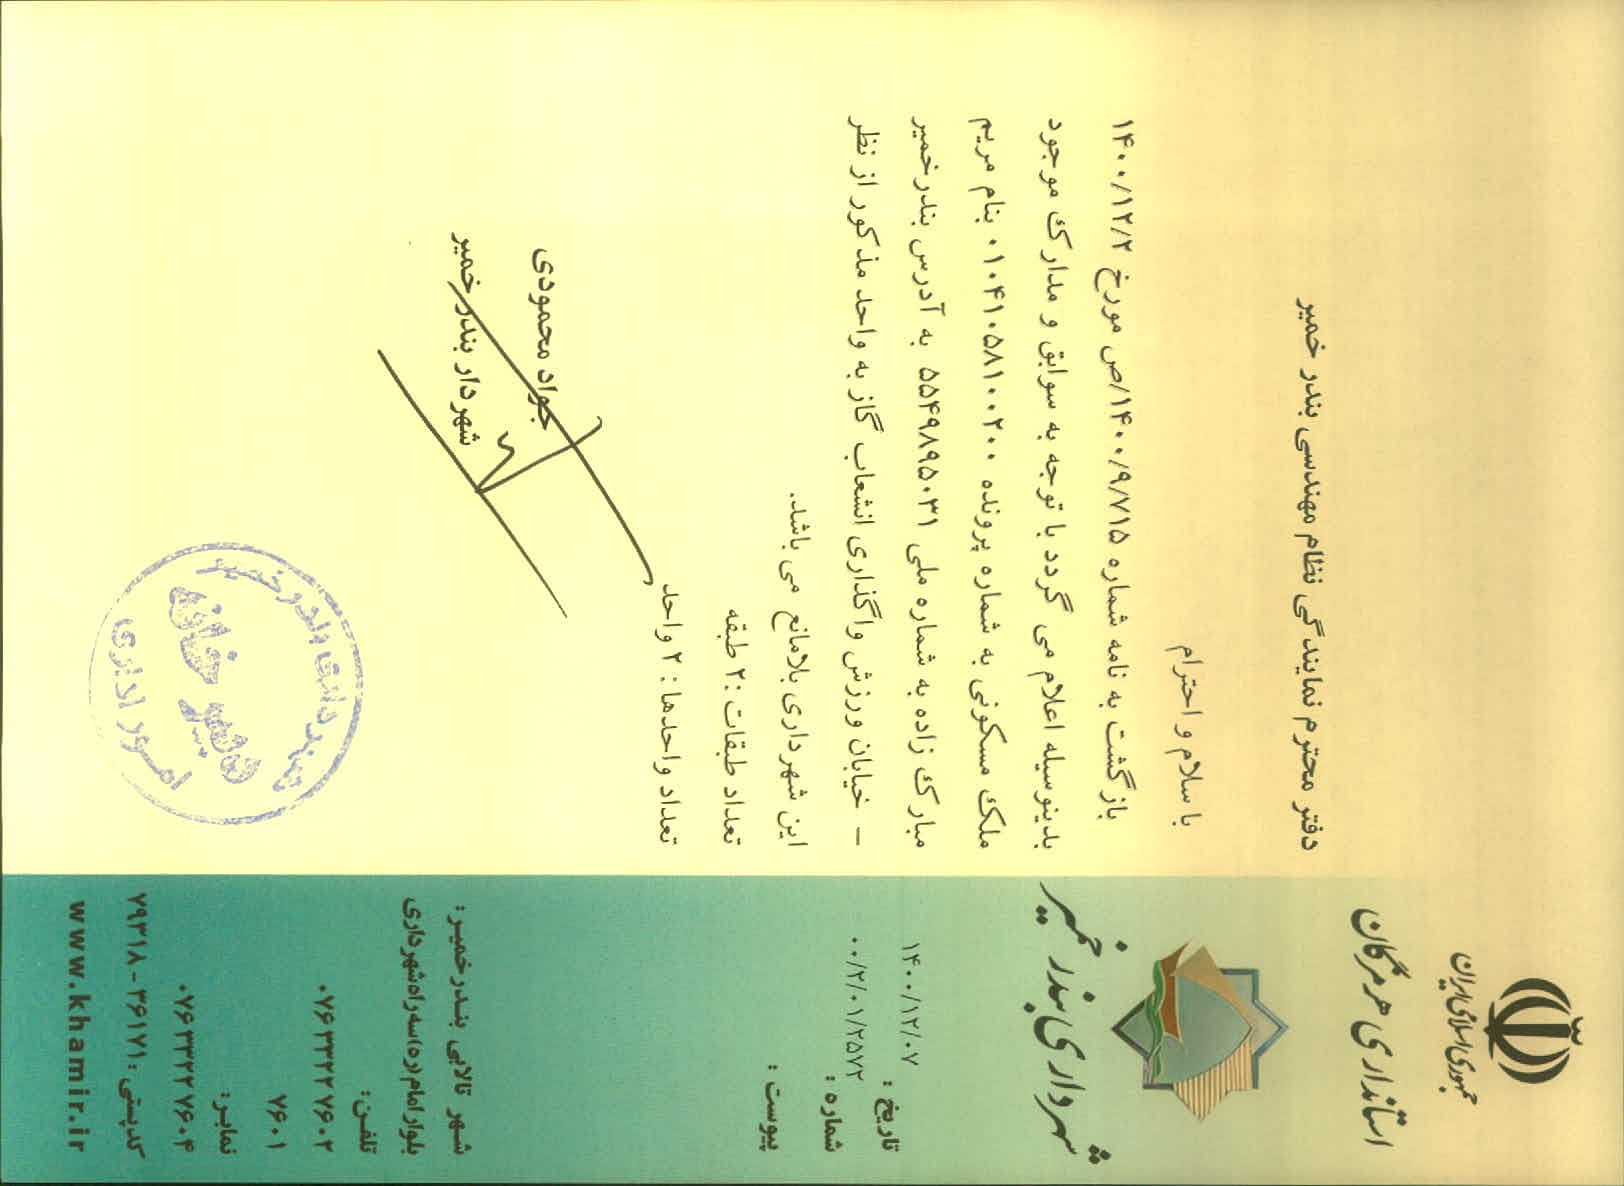 جمهوری اسلامی ایران
استانداری هرمزگان
شهرداری بندر خمیر
تاریخ : ۱۴۰۰/۱۲/۰۷
شماره : ۰۰/۲/۰۱/۲۵۷۲
پیوست :
دفتر محترم نمایندگی نظام مهندسی بندر خمیر
با سلام و احترام
بازگشت به نامه شماره ۱۴۰۰/۹/۷۱۵/ص مورخ ۱۴۰۰/۱۲/۲
بدینوسیله اعلام می گردد با توجه به سوابق و مدارک موجود
ملک مسکونی به شماره پرونده ۰۱۰۴۱۰۵۸۱۰۰۲۰۰ بنام مریم
مبارک زاده به شماره ملی ۵۵۴۹۸۹۵۰۳۱ به آدرس بندرخمیر
– خیابان ورزش واگذاری انشعاب گاز به واحد مذکور از نظر
این شهرداری بلامانع می باشد.
تعداد طبقات :۲ طبقه
تعداد واحدها : ۲ واحد
جواد محمودی
شهردار بندر خمیر
شهرداری بندر خمیر
دبیر خانه
امور اداری
شهر تالابی بندرخمیر:
بلوار امام (ره) سه راه شهرداری
تلفن:
۰۷۶۳۳۲۲۷۶۰۲
۷۶۰۱
نمابر:
۰۷۶۳۳۲۲۷۶۰۴
کدپستی: ۳۶۱۷۱ - ۷۹۳۱۸
www.khamir.ir